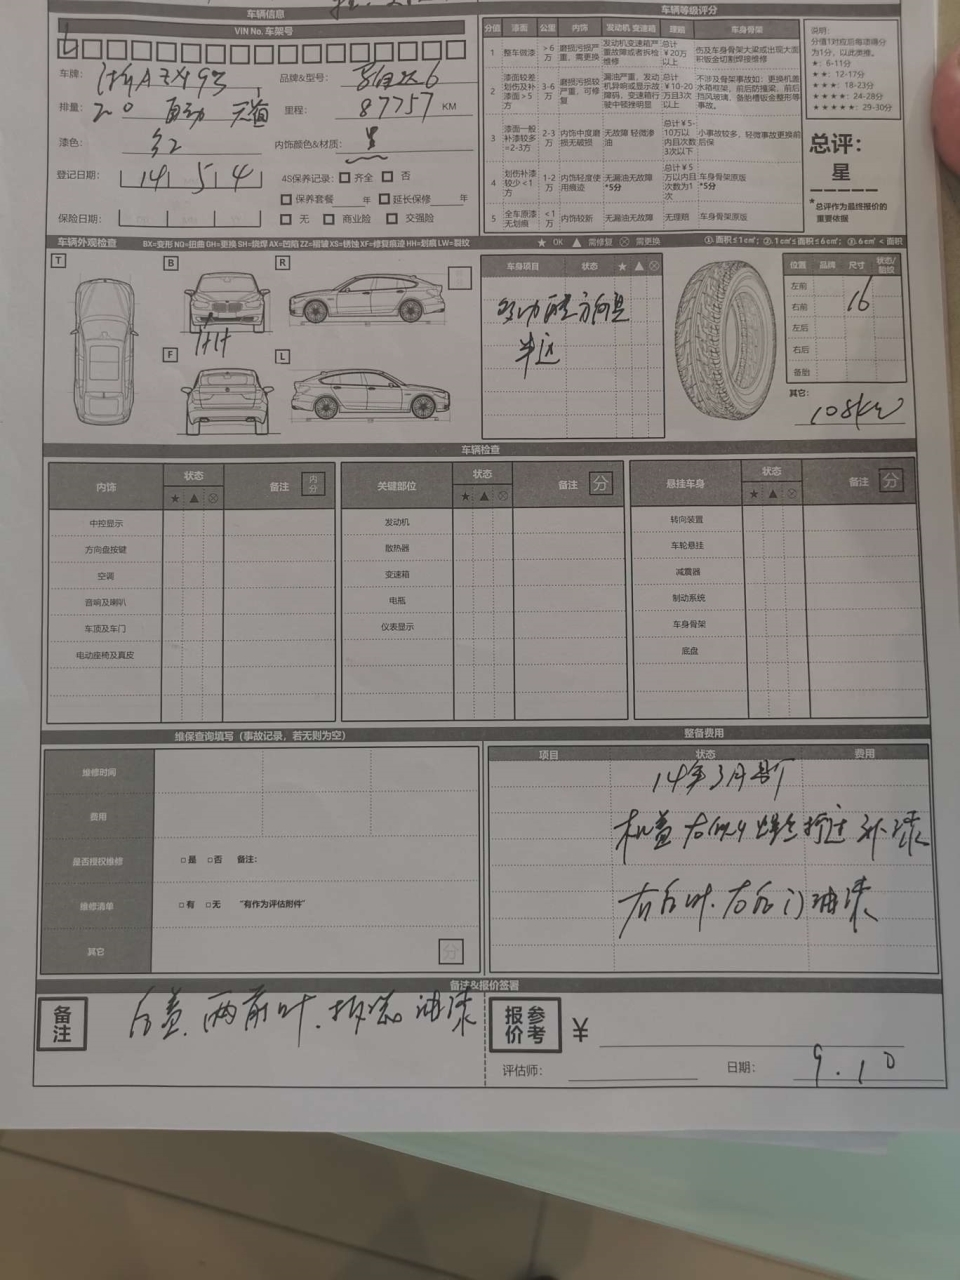 车辆信息
VIN No. 车架号
车牌：
品牌&型号：
排量：2.0 自动 天窗
里程：87757 KM
漆色：红
内饰颜色&材质：黑
登记日期：14 5 4
4S保养记录：□ 齐全 □ 否
□ 保养套餐 年 □ 延长保修 年
保险日期：
□ 无 □ 商业险 □ 交强险
车辆等级评分
分值 漆面 公里 内饰 发动机 变速箱 理赔 车身骨架
1 整车做漆 >6万 磨损污损严重、需更换 发动机变速箱严重故障或者拆检维修 总计￥20万以上 伤及车身骨架大梁或出现大面积钣金切割焊接维修
2 漆面较差划伤及补漆面>5方 3-6万 磨损污损较严重，可修复 漏油严重、发动机异响或显示故障码，变速箱行驶中顿挫明显 总计￥10-20万且3次以上 不涉及骨架事故如：更换机盖水箱框架，前后防撞梁、前后挡风玻璃、备胎槽钣金整形等事故。
3 漆面一般补漆较多=2-3方 2-3万 内饰中度磨损无破损 无故障 轻微渗油 总计￥5-10万以内且次数3次以下 小事故较多，轻微事故更换前后保
4 划伤补漆较少<1方 1-2万 内饰轻度使用痕迹 无漏油无故障 *5分 总计￥5万以内且次数为1次 车身骨架原版 *5分
5 全车原漆无划痕 <1万 内饰较新 无漏油无故障 无理赔 车身骨架原版
说明：
分值1对应后每项得分为1分，以此类推。
★：6-11分
★★：12-17分
★★★：18-23分
★★★★：24-28分
★★★★★：29-30分
总评：
星
*总评作为最终报价的重要依据
车辆外观检查 BX=变形 NQ=扭曲 GH=更换 SH=烧焊 AX=凹陷 ZZ=褶皱 XS=锈蚀 XF=修复痕迹 HH=划痕 LW=裂纹
★ OK ▲ 需修复 ⊗ 需更换
①.面积≤1c㎡；②.1c㎡≤面积≤6c㎡；③.6c㎡<面积
T
B
R
F
L
HH
车身项目 状态 ★ ▲ ⊗
多功能方向盘
位置 品牌 尺寸 状态/胎纹
左前
右前 16
左后
右后
备胎
其它：108kW
车辆检查
内饰 状态 ★ ▲ ⊗ 备注 内分
中控显示
方向盘按键
空调
音响及喇叭
车顶及车门
电动座椅及真皮
关键部位 状态 ★ ▲ ⊗ 备注 分
发动机
散热器
变速箱
电瓶
仪表显示
悬挂车身 状态 ★ ▲ ⊗ 备注 分
转向装置
车轮悬挂
减震器
制动系统
车身骨架
底盘
维保查询填写（事故记录，若无则为空）
维修时间
费用
是否授权维修 □是 □否 备注：
维修清单 □有 □无 "有作为评估附件"
其它 分
整备费用
项目 状态 费用
14年3月出厂
右后叶.右后门油漆
备注&报价签署
备注
后盖.两前叶.
油漆
报价参考 ￥
评估师：
日期：9.10